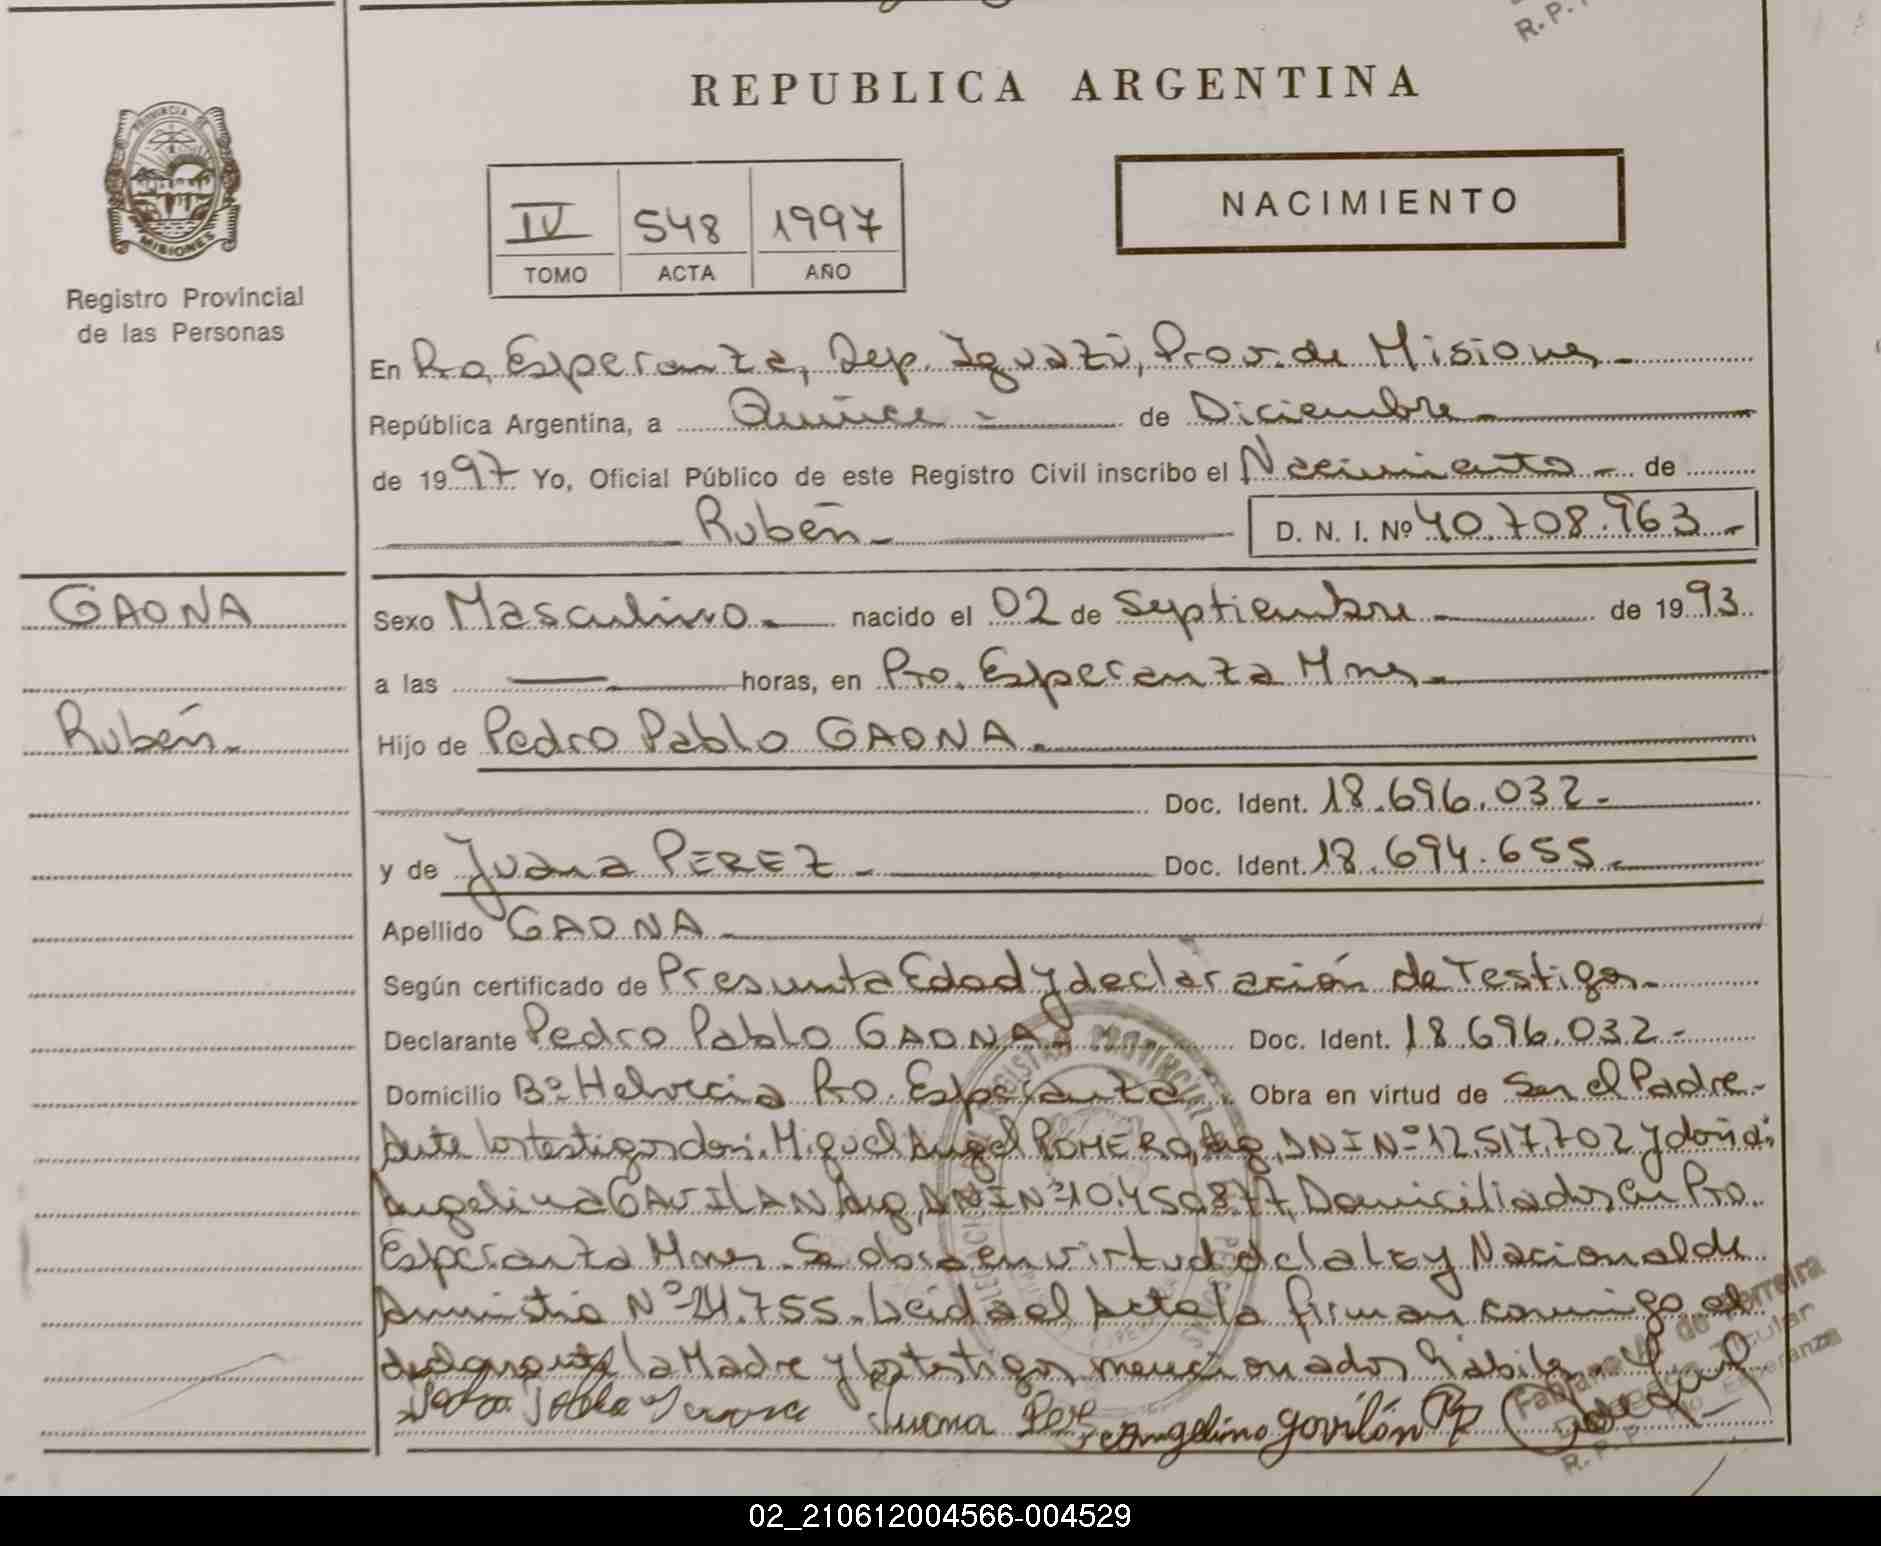 R. P.
REPUBLICA ARGENTINA
PROVINCIA DE
MISIONES
Registro Provincial
de las Personas
IV 548 1997
TOMO ACTA AÑO
NACIMIENTO
En Pto. Esperanza, Dep. Iguazú, Prov. de Misiones
República Argentina, a Quince de Diciembre
de 1997 Yo, Oficial Público de este Registro Civil inscribo el Nacimiento de
Rubén D. N. I. Nº 40.708.963
GAONA
Rubén
Sexo Masculino nacido el 02 de Septiembre de 1993
a las horas, en Pto. Esperanza Mnes
Hijo de Pedro Pablo GAONA
Doc. Ident. 18.696.032
y de Juana PEREZ Doc. Ident. 18.694.655
Apellido GAONA
Según certificado de Presunta Edad y declaración de Testigos
Declarante Pedro Pablo GAONA Doc. Ident. 18.696.032
Domicilio Bº Helvecia Pto. Esperanza Obra en virtud de Ser el Padre
Ante los testigos don: Miguel Angel ROMERO, Arg, DNI Nº 12.517.702 y doña:
Angelina GAVILAN, Arg, DNI Nº 10.450.877, Domiciliados en Pto.
Esperanza Mnes. Se obra en virtud de la ley Nacional de
Amnistia Nº 24.755. Leida el Acta la firman conmigo el
declarante, la Madre y los testigos mencionados hábiles
Juana Perez Angelina Gavilán
02_210612004566-004529